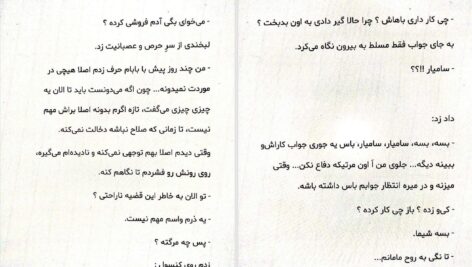 - چی کار داری باهاش ؟ چرا حالا گیر دادی به اون بدبخت ؟
به جای جواب فقط مسلط به بیرون نگاه می‌کرد.
- سامیار !!؟؟
داد زد:
- بسه، بسه، سامیار، سامیار، باس یه جوری جواب کاراش‌و
ببینه دیگه... جلوی من اَ اون مرتیکه دفاع نکن... وقتی
میزنه و در میره انتظار جوابم باس داشته باشه.
- کی‌و زده ؟ باز چی کار کرده ؟
- بسه شیما.
- تا نگی به روح مامانم...
- می‌خوای بگی آدم فروشی کرده ؟
لبخندی از سرِ حرص و عصبانیت زد.
- من چند روز پیش با بابام حرف زدم اصلا هیچی در
موردت نمیدونه... چون اگه می‌دونست باید تا الان یه
چیزی چیزی می‌گفت، تازه اگرم بدونه اصلا براش مهم
نیست، تا زمانی که صلاح نباشه دخالت نمی‌کنه.
وقتی دیدم اصلا بهم توجهی نمی‌کنه و نادیده‌ام می‌گیره،
روی رونش رو فشردم تا نگاهم کنه.
- تو الان به خاطر این قضیه ناراحتی ؟
- یه ذرم واسم مهم نیست.
- پس چه مرگته ؟
زدم روی کنسول :